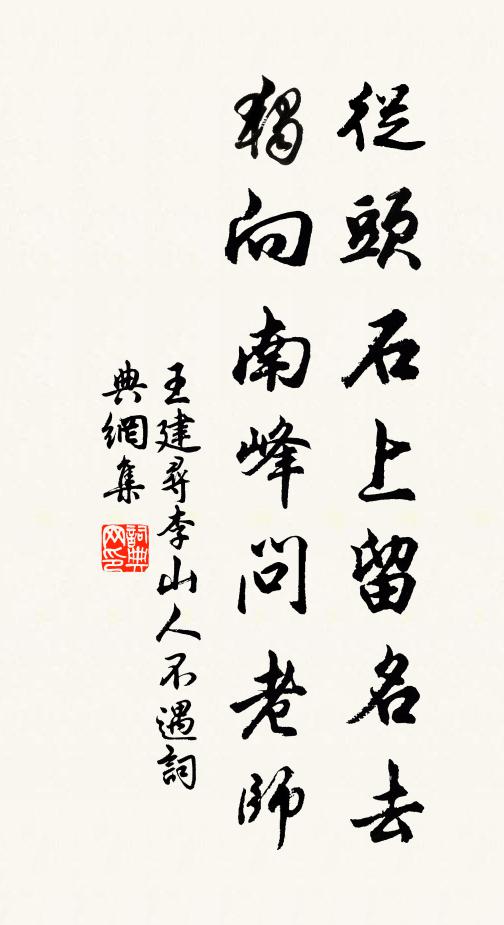 從頭石上留名去
獨向南峰問老師
王建尋李山人不遇詞
典網集
詞典網印